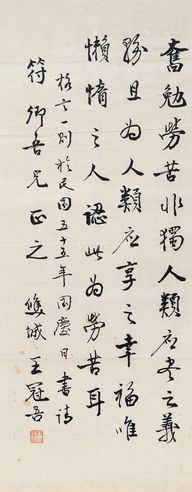 奮勉勞苦非獨人類應盡之義
務且為人類應享之幸福唯
懶惰之人認此為勞苦耳
格言一則於民國五十五年國慶日書請
符卿吾兄正之 雙城王冠吾